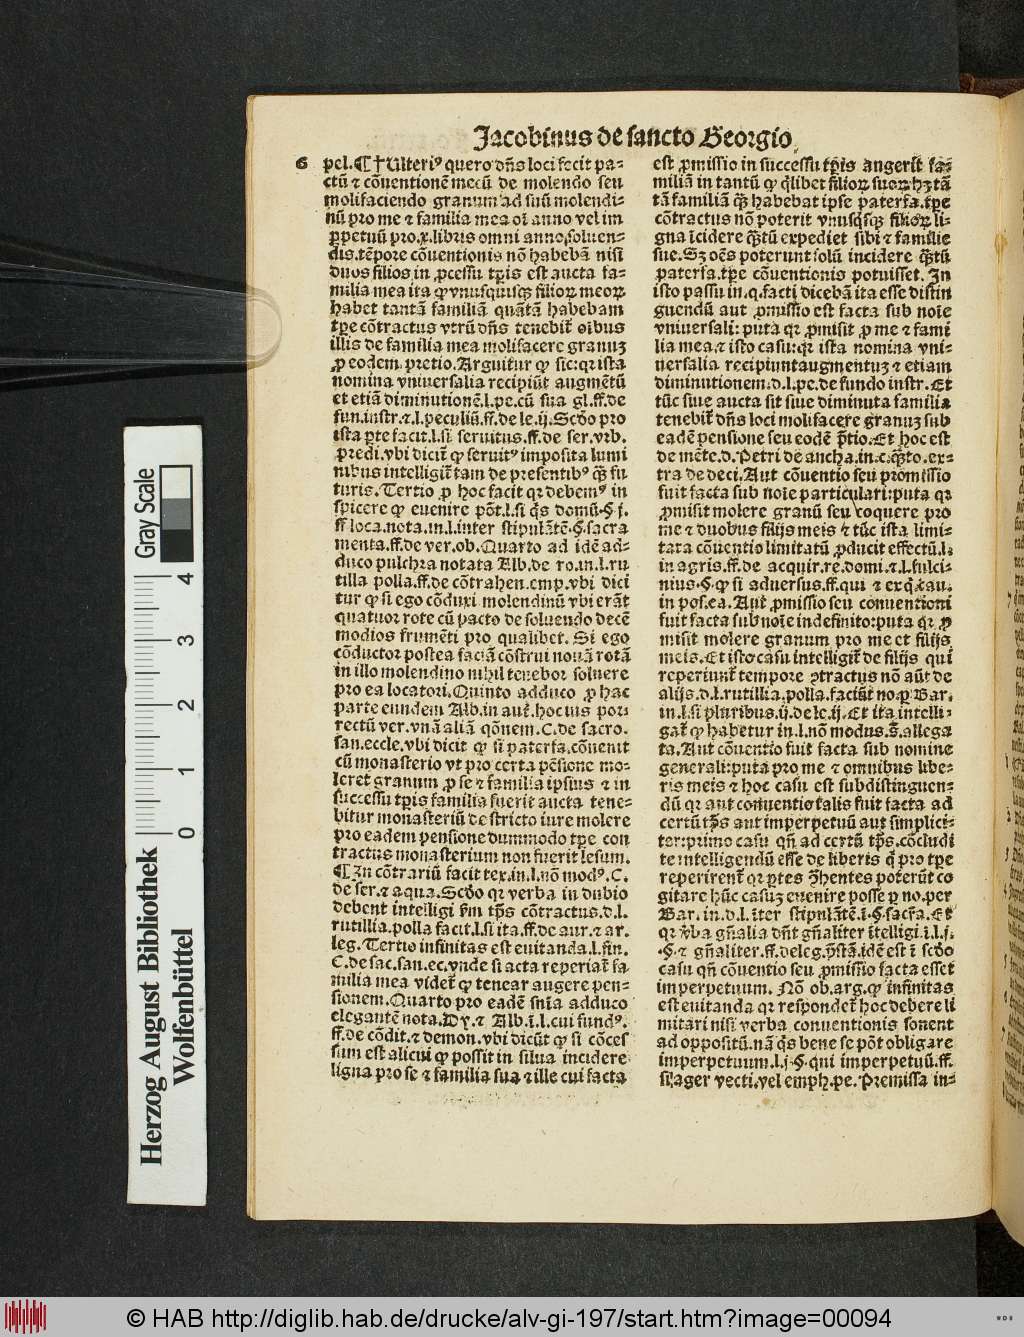 Jacobinus de sancto Georgio
6 pel.¶†Ulteriꝰ quero dn̄s loci fecit pa⸗
ctū ⁊ cōuentionē mecū de molendo seu
molifaciendo granum ad suū molendi⸗
nū pro me ⁊ familia mea oī anno vel im
ꝑpetuū pro.x.libris omni anno soluen⸗
dis.tēpore cōuentionis nō habebā nisi
duos filios in ꝓcessu tꝑis est aucta fa⸗
milia mea ita ꝙ vnusquisqꝫ filioꝝ meoꝝ
habet tantā familiā quātā habebam
tꝑe cōtractus vtrū dn̄s tenebit̄ oībus
illis de familia mea molifacere granuꝫ
ꝓ eodem pretio.Arguitur ꝙ sic:qꝛ ista
nomina vniuersalia recipiūt augmētū
et etiā diminutionē.l.pe.cū sua gl.ff.de
fun.instr.⁊.l.peculiū.ff.de le.ij.Scd̄o pro
ista ꝑte facit.l.si seruitus.ff.de ser.vrb.
predi.vbi dicit̄ ꝙ seruitꝰ imposita lumi
nibus intelligit̄ tam de presentibꝰ qꝫ̄ fu
turis.Tertio ꝓ hoc facit qꝛ debemꝰ in
spicere ꝙ euenire pōt.l.si qͥs domū.§.j.
ff.loca.nota.in.l.inter stipulātē.§.sacra
menta.ff.de ver.ob.Quarto ad idē ad⸗
duco pulchra notata Alb.de ro.in.l.ru
tilla polla.ff.de cōtrahen.emp.vbi dici
tur ꝙ si ego cōduxi molendinū vbi erāt
quatuor rote cū pacto de soluendo decē
modios frumēti pro qualibet. Si ego
cōductor postea faciā cōstrui nouā rotā
in illo molendino nihil teneor soluere
pro ea locatori.Quinto adduco ꝓ hac
parte eundem Alb.in aut̄.hoc ius por⸗
rectū ver.vnā aliā qōnem.C.de sacro.
san.eccle.vbi dicit ꝙ si paterfa.cōuenit
cū monasterio vt pro certa pēsione mo⸗
leret granum ꝓ se ⁊ familia ipsius ⁊ in
successu tꝑis familia fuerit aucta tene⸗
bitur monasteriū de stricto iure molere
pro eadem pensione dummodo tꝑe con
tractus monasterium non fuerit lesum.
¶In cōtrariū facit tex.in.l.nō modꝰ.C.
de ser.⁊ aqua.Scd̄o qꝛ verba in dubio
debent intelligi fm̄ tp̄s cōtractus.d.l.
rutillia.polla facit.l.si ita.ff.de aur.⁊ ar.
leg.Tertio infinitas est euitanda.l.fin.
C.de sac.san.ec.vnde si acta reperiat̄ fa
milia mea videt̄ ꝙ tenear augere pen⸗
sionem.Quarto pro eadē sn̄ia adduco
elegantē nota.Dy.⁊ Alb.ī.l.cui fundꝰ.
ff.de cōdit.⁊ demon.vbi dicūt ꝙ si cōces
sum est alicui ꝙ possit in silua incidere
ligna pro se ⁊ familia sua ⁊ ille cui facta
est ꝓmissio in successu tꝑis augerit fa⸗
miliā in tantū ꝙ qͥlibet filioꝝ suoꝝ hꝫ tā
tā familiā qꝫ̄ habebat ipse paterfa.tꝑe
cōtractus nō poterit vnusqͥsqꝫ filioꝝ li⸗
gna īcidere qꝫ̄tū expediet sibi ⁊ familie
sue.Sꝫ oēs poterunt solū incidere qꝫ̄tū
paterfa.tꝑe cōuentionis potuisset. In
isto passu in.q.facti dicebā ita esse distin
guendū aut ꝓmissio est facta sub noīe
vniuersali: puta qꝛ ꝓmisit ꝓ me ⁊ fami
lia mea.⁊ isto casu:qꝛ ista nomina vni⸗
uersalia recipiunt augmentuꝫ ⁊ etiam
diminutionem.d.l.pe.de fundo instr.Et
tūc siue aucta sit siue diminuta familia
tenebit̄ dn̄s loci molifacere granuꝫ sub
eadē pensione seu eodē p̄tio.Et hoc est
de mēte.d.Petri de ancha.in.c.qꝫ̄to.ex⸗
tra de deci.Aut cōuentio seu promissio
fuit facta sub noīe particulari:puta qꝛ
ꝓmisit molere granū seu coquere pro
me ⁊ duobus filijs meis ⁊ tūc ista limi⸗
tata cōuentio limitatū ꝓducit effectū.l.
in agris.ff.de acquir.re.domi.⁊.l.fulci⸗
nius.§.ꝙ si aduersus.ff.qui ⁊ ex q̄.cau.
in pos.ea.Aut ꝓmissio seu conuentioni
fuit facta sub noīe indefinito:puta qꝛ ꝓ
misit molere granum pro me et filijs
meis.Et isto casu intelligit̄ de filijs qui
reperiunt̄ tempore ꝯtractus nō aūt de
alijs.d.l.rutillia.polla.faciūt no.ꝑ Bar.
in.l.si pluribus.ff.de le.ij.Et ita intelli⸗
gat̄ ꝙ habetur in.l.nō modus.s̄.allega
ta.Aut cōuentio fuit facta sub nomine
generali:puta pro me ⁊ omnibus libe⸗
ris meis ⁊ hoc casu est subdistinguen⸗
dū qꝛ aut conuentio talis fuit facta ad
certū tp̄s aut imperpetuū aut simplici⸗
ter:primo casu qn̄ ad certū tp̄s.cōcludi
te intelligendū esse de liberis qͥ pro tꝑe
reperirent̄ qꝛ ꝑtes ꝯhentes poterūt co
gitare hūc casuꝫ euenire posse ꝑ no.per
Bar.in.d.l.īter stipulātē.ī.§.sacra.Et
qꝛ v̄ba gn̄alia dn̄t gn̄aliter ītelligi.ī.l.j.
.§.⁊ gn̄aliter.ff.de leg.p̄stā.idē est ī scd̄o
casu qn̄ cōuentio seu ꝓmissio facta esset
imperpetuum. Nō ob.arg.ꝙ infinitas
est euitanda qꝛ respondet̄ hoc debere li
mitari nisi verba conuentionis sonent
ad oppositū.nā qͥs bene se pōt obligare
imperpetuum.l.j.§.qui imperpetuū.ff.
si.ager vecti.vel emph.pe. Premissa in⸗
Herzog August Bibliothek
Wolfenbüttel
0 1 2 3 4
Gray Scale
© HAB http://diglib.hab.de/drucke/alv-gi-197/start.htm?image=00094